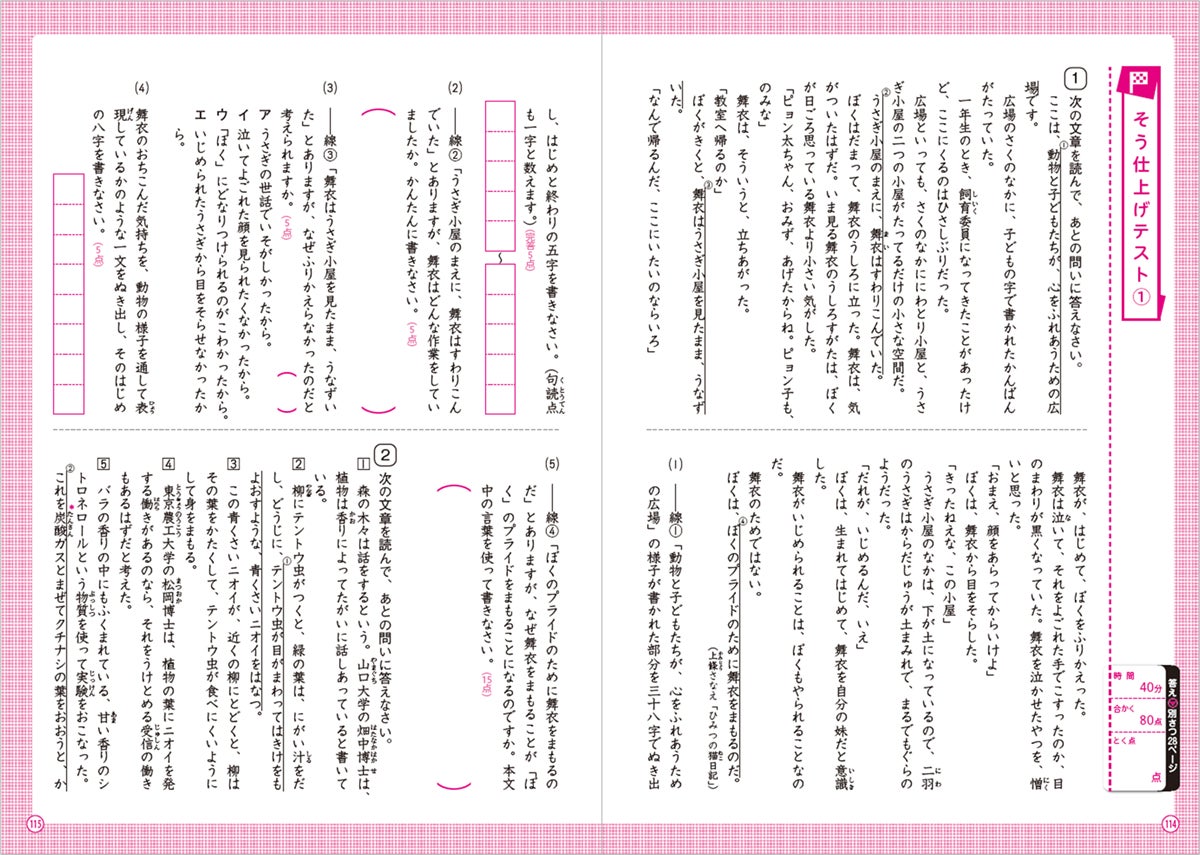 そう仕上げテスト①
時間 40分
合かく 80点
とく点 点
答え 別さつ28ページ
1 次の文章を読んで、あとの問いに答えなさい。
ここは、①動物と子どもたちが、心をふれあうための広
場です。
広場のさくのなかに、子どもの字で書かれたかんばん
がたっていた。
一年生のとき、飼育委員になってきたことがあったけ
ど、ここにくるのはひさしぶりだった。
広場といっても、さくのなかににわとり小屋と、うさ
ぎ小屋の二つの小屋がたってるだけの小さな空間だ。
②うさぎ小屋のまえに、舞衣はすわりこんでいた。
ぼくはだまって、舞衣のうしろに立った。舞衣は、気
がついたはずだ。いま見る舞衣のうしろすがたは、ぼく
が日ごろ思っている舞衣より小さい気がした。
「ピョン太ちゃん、おみず、あげたからね。ピョン子も、
のみな」
舞衣は、そういうと、立ちあがった。
「教室へ帰るのか」
ぼくがきくと、③舞衣はうさぎ小屋を見たまま、うなず
いた。
「なんで帰るんだ、ここにいたいのならいろ」
舞衣が、はじめて、ぼくをふりかえった。
舞衣は泣いて、それをよごれた手でこすったのか、目
のまわりが黒くなっていた。舞衣を泣かせたやつを、憎
いと思った。
「おまえ、顔をあらってからいけよ」
ぼくは、舞衣から目をそらした。
「きったねえな、この小屋」
うさぎ小屋のなかは、下が土になっているので、二羽
のうさぎはからだじゅうが土まみれで、まるでもぐらの
ようだった。
「だれが、いじめるんだ、いえ」
ぼくは、生まれてはじめて、舞衣を自分の妹だと意識
した。
舞衣がいじめられることは、ぼくもやられることなの
だ。
舞衣のためではない。
ぼくは、④ぼくのプライドのために舞衣をまもるのだ。
(上條さなえ「ひみつの猫日記」)
(1) ――線①「動物と子どもたちが、心をふれあうため
の広場」の様子が書かれた部分を三十八字でぬき出
114
し、はじめと終わりの五字を書きなさい。(句読点
も一字と数えます。)(完答5点)
〜
(2) ――線②「うさぎ小屋のまえに、舞衣はすわりこん
でいた」とありますが、舞衣はどんな作業をしてい
ましたか。かんたんに書きなさい。(5点)
(3) ――線③「舞衣はうさぎ小屋を見たまま、うなずい
た」とありますが、なぜふりかえらなかったのだと
考えられますか。(5点)
ア うさぎの世話でいそがしかったから。
イ 泣いてよごれた顔を見られたくなかったから。
ウ 「ぼく」にどなりつけられるのがこわかったから。
エ いじめられたうさぎから目をそらせなかったか
ら。
(4) 舞衣のおちこんだ気持ちを、動物の様子を通して表
現しているかのような一文をぬき出し、そのはじめ
の八字を書きなさい。(5点)
(5) ――線④「ぼくのプライドのために舞衣をまもるの
だ」とありますが、なぜ舞衣をまもることが「ぼ
く」のプライドをまもることになるのですか。本文
中の言葉を使って書きなさい。(15点)
2 次の文章を読んで、あとの問いに答えなさい。
1 森の木々は話をするという。山口大学の畑中博士は、
植物は香りによってたがいに話しあっていると書いて
いる。
2 柳にテントウ虫がつくと、緑の葉は、にがい汁をだ
し、どうじに、①テントウ虫が目がまわってはきけをも
よおすような、青くさいニオイをはなつ。
3 この青くさいニオイが、近くの柳にとどくと、柳は
その葉をかたくして、テントウ虫が食べにくいように
して身をまもる。
4 東京農工大学の松岡博士は、植物の葉にニオイを発
する働きがあるのなら、それをうけとめる受信の働き
もあるはずだと考えた。
5 バラの香りの中にもふくまれている、甘い香りのシ
トロネロールという物質を使って実験をおこなった。
②これを炭酸ガスとまぜてクチナシの葉をおおうと、か
115